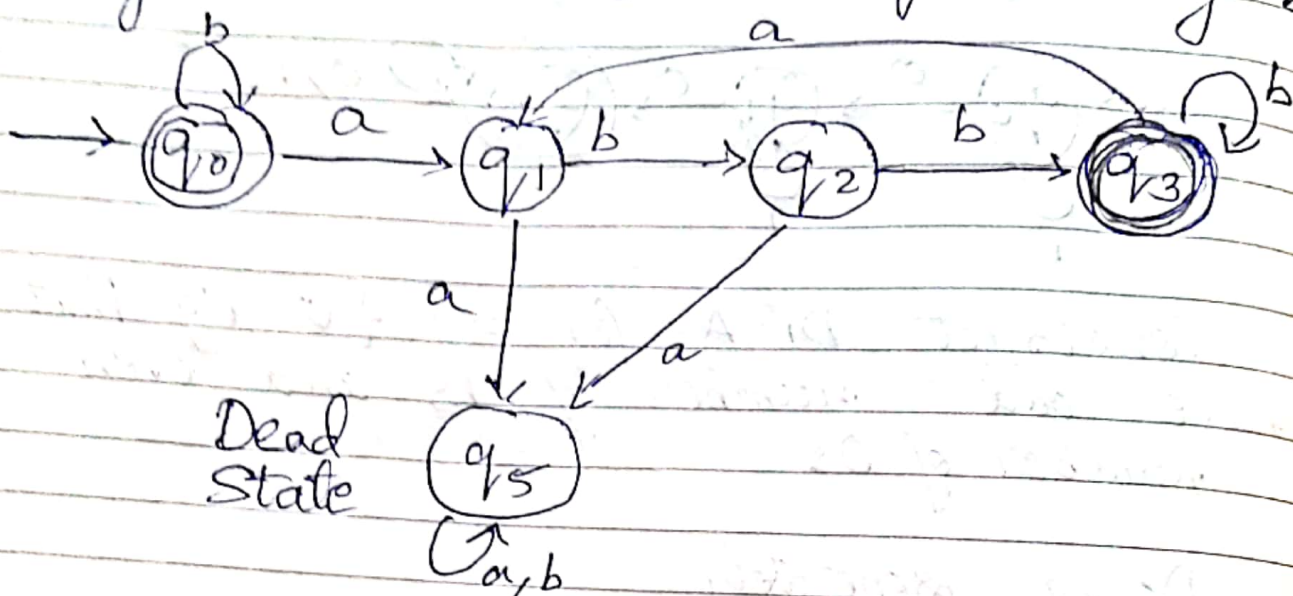 b
a
b
q0
a
q1
b
q2
b
q3
a
a
Dead
State
q5
a,b